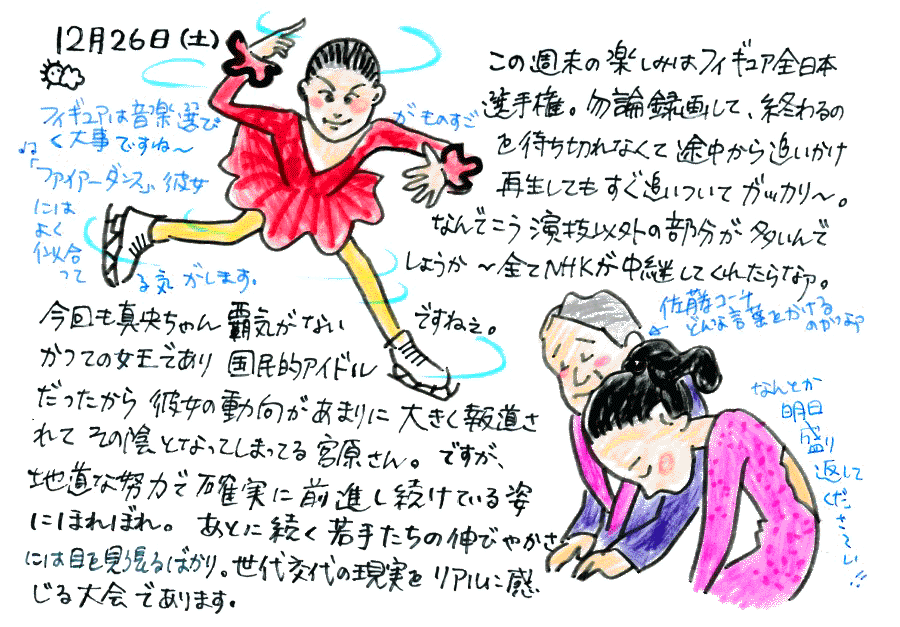 12月26日(土)
フィギュアは音楽選び
がものすご
く大事ですね～
「ファイアーダンス」彼女
には
よく
似合
って
る気がします。
この週末の楽しみはフィギュア全日本
選手権。勿論録画して、終わるの
を待ち切れなくて途中から追いかけ
再生してもすぐ追いついてガッカリ～。
なんでこう演技以外の部分が多いんで
しょうか～全てNHKが中継してくれたらなァ。
今回も真央ちゃん覇気がないですねぇ。
かつての女王であり国民的アイドル
だったから彼女の動向があまりに大きく報道さ
れてその陰となってしまってる宮原さん。ですが、
地道な努力で確実に前進し続けている姿
にほれぼれ。あとに続く若手たちの伸びやかさ
には目を見張るばかり。世代交代の現実をリアルに感
じる大会であります。
佐藤コーチ
どんな言葉をかける
のかなァ
なんとか
明日
盛り
返して
くだ
さーい!!